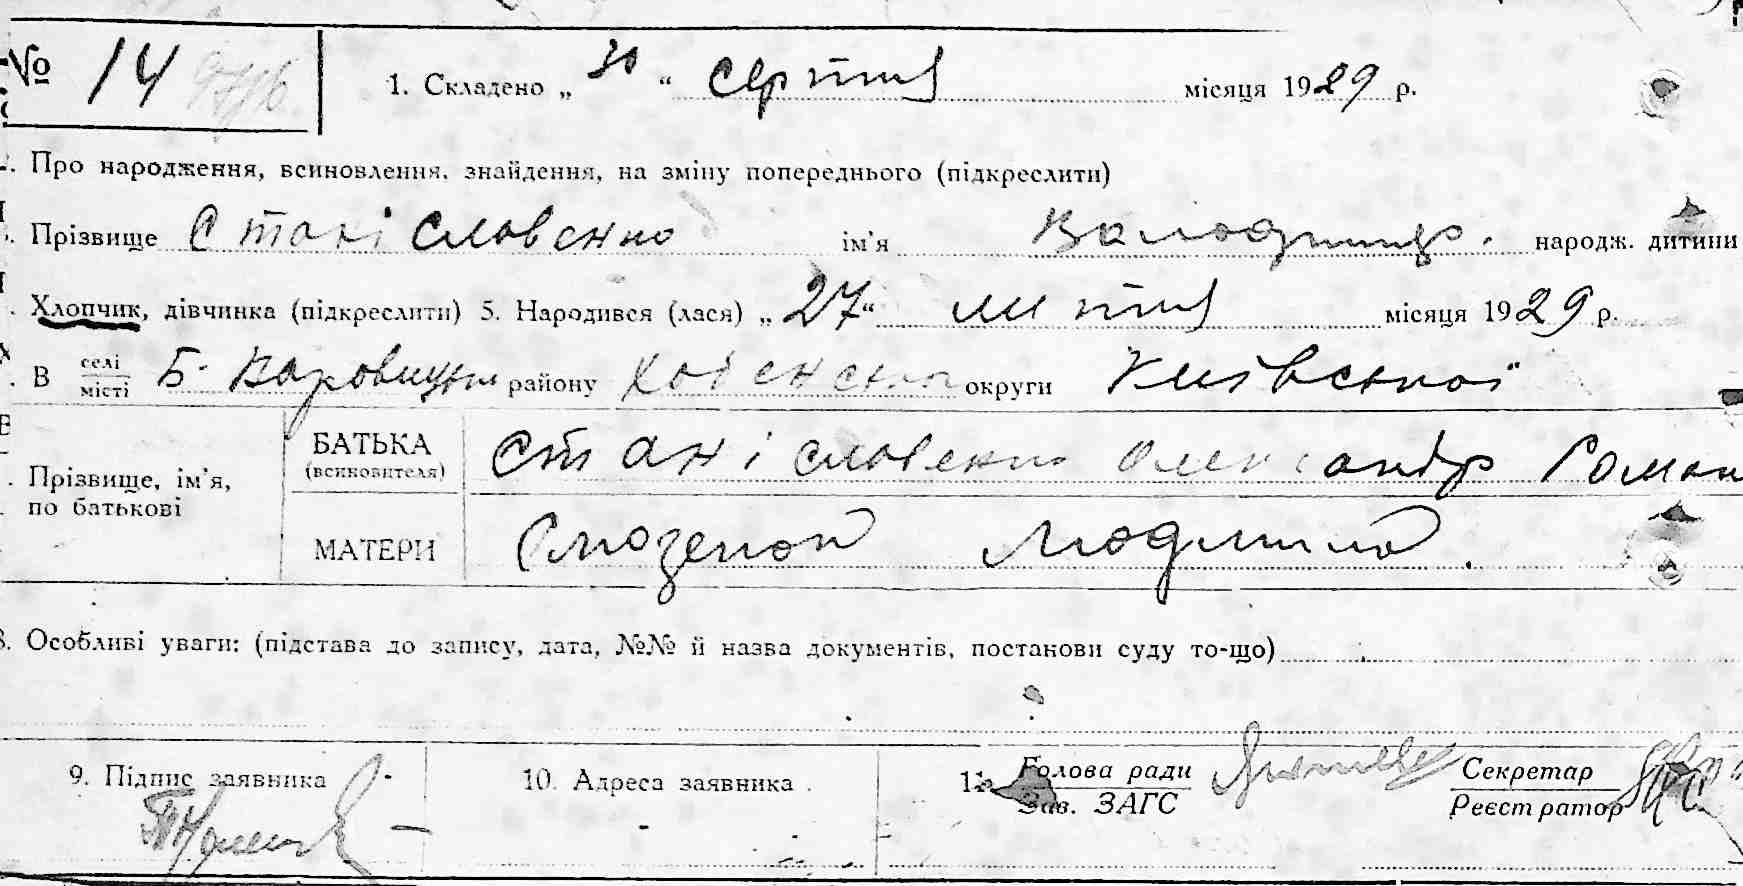 № 14 1. Складено „ 30 “ серпня місяця 1929 р.
. Про народження, всиновлення, знайдення, на зміну попереднього (підкреслити)
. Прізвище Станіславенко ім'я Володимир. народж. дитини
. Хлопчик, дівчинка (підкреслити) 5. Народився (лася) „ 27 “ липня місяця 1929 р.
. В селі/місті Б. Каровицьк району округи Київської
БАТЬКА (всиновителя) Станіславенко Олександр Роман
Прізвище, ім'я, по батькові
МАТЕРИ Людмила.
8. Особливі уваги: (підстава до запису, дата, №№ й назва документів, постанови суду то-що)
9. Підпис заявника 10. Адреса заявника. 11. Голова ради/Зав. ЗАГС Секретар/Реєстратор